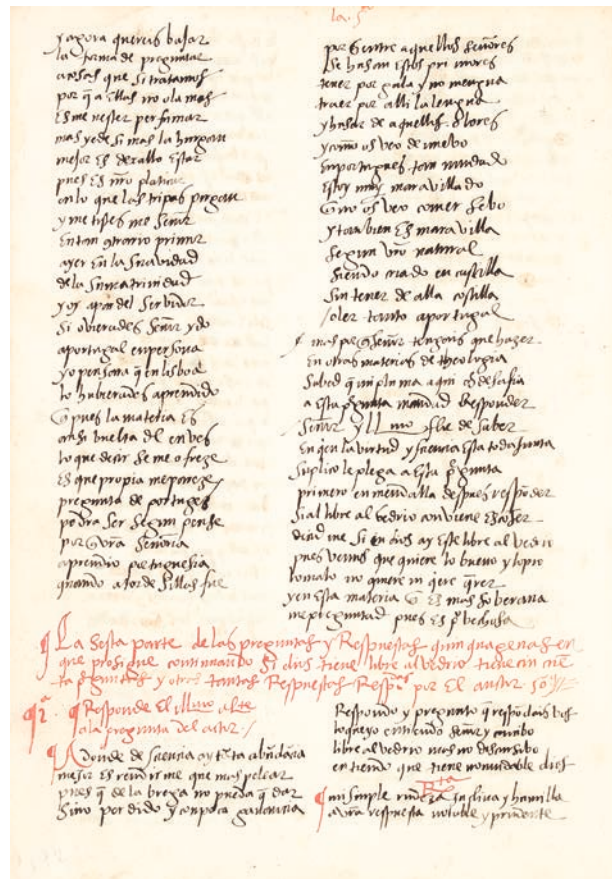 la 5ª
y agora quereis bajar
la forma de preguntar
a cosas que si tratamos
por q̃ a ellas no olamos
es menester perfumar
mas yede si mas la hurgan
mejor es dexallo estar
pues es nr̃o platicar
en lo que las tripas purgan
y metistes me señor
en tan contrario primor
ayer en la navidad
de la suma trinidad
y oy a par del servidor
si ovierades señor ydo
a portugal en persona
y o persona q̃ en lisboa
lo huberades aprendido
pues la materia es
ansi buelta del enves
lo que desir se me ofreze
es que propia me pareze
pregunta de portuges
podra ser segun pense
por señoria
aprendio portuguesia
quando a tordesillas fue
por ventre aquellos señores
se husan estos primores
tener por gala y no mengua
traer por alli la lengua
y husar de aquellas flores
y como os veo de nuevo
en portugues tan mudado
estoy muy maravillado
como os veo comer sebo
y tambien es maravilla
segun vr̃o natural
siendo criado en castilla
sin tener de alla costilla
oler tanto a portugal
mas señor tengais que hazer
en otras materias de theologia
sabed q̃ mi pluma aqui os desafia
a esta pregunta mandad responder
señor yllmo de saber
en quien la virtud y sciencia esta toda junta
suplico le plega a esta pregunta
primero enmendalla despues respõder
si al libre albedrio conviene escoger
dezid me si en dios ay este libre alvedrio
pues vemos que quiere lo bueno y lo pio
lo malo no quiere ni quiere querer
y en esta materia q̃ es mas soberana
me preguntad pues es provechosa
La sesta parte de las preguntas y Respuestas quinquagenas en
que prosigue continuando si dios tiene libre alvedrio tiene cin cuen
ta preguntas y otras tantas Respuestas por El autor 50
Responde El illmo al te
a la pregunta del autor
Adonde de sciencia ay tãta abũdãcia
mejor es rendirme que mas pelear
pues q̃ de la brega no puedo q̃ dar
sino perdido y con poca ganancia
Respondo y pregunto q̃ respõdais vos
lo qual entiendo señor y cõcibo
libre alvedrio mas no discursivo
entiendo que tiene inmudable dios
Rta
mi simple rudeza se inclina y humilla
a vr̃a respuesta notable y prudente